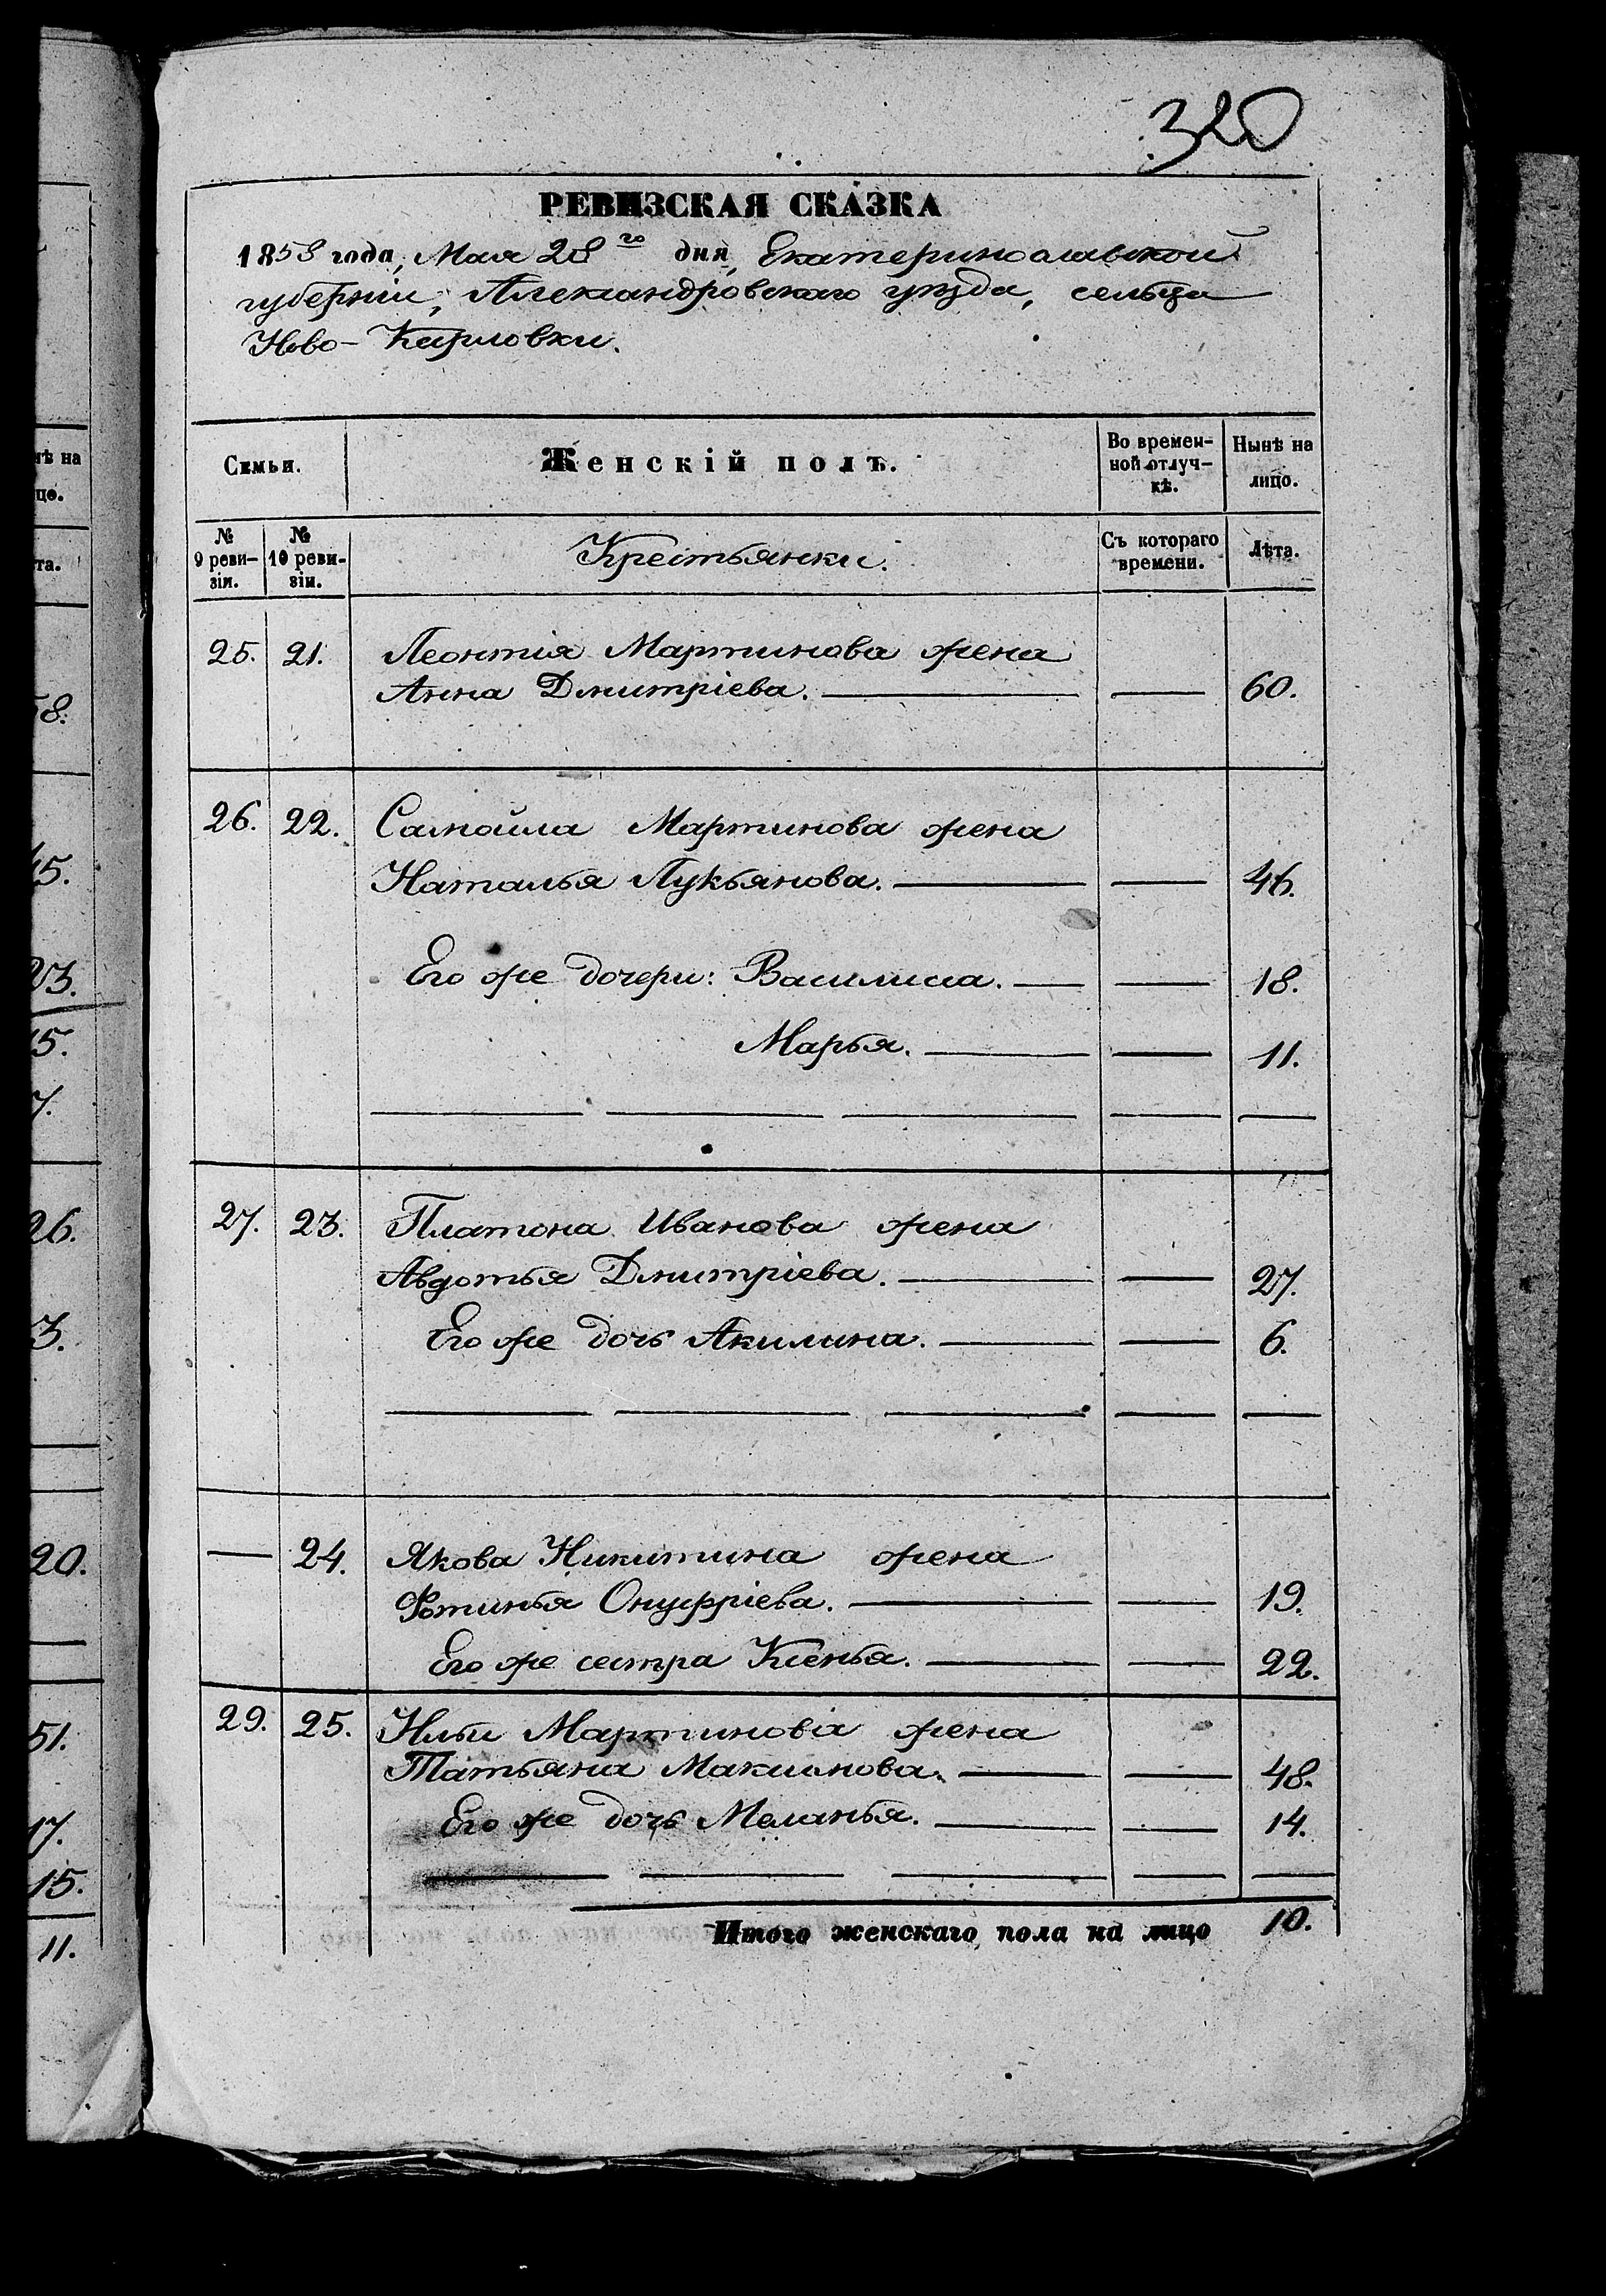 320
РЕВИЗСКАЯ СКАЗКА
1858 года, Мая 28го дня, Екатеринославской
губерніи, Александровскаго уѣзда, сельца
Ново-Карловки.
Семьи. Женскій полъ. Во времен-ной отлуч-кѣ. Нынѣ на лицо.
№ 9 реви-зіи. № 10 реви-зіи. Крестьянки. Съ котораго времени. Лѣта.
25. 21. Леонтія Мартинова жена
Анна Дмитріева. — — 60.
26. 22. Самойла Мартинова жена
Наталья Лукьянова. — — 46.
Его же дочери: Василиса. — — 18.
Марья. — — 11.
27. 23. Платона Иванова жена
Авдотья Дмитріева. — — 27.
Его же дочь Акилина. — — 6.
— 24. Якова Никитина жена
Фотинья Онуфріева. — — 19.
Его же сестра Ксенья. — — 22.
29. 25. Ильи Мартинова жена
Татьяна Максимова. — — 48.
Его же дочь Меланья. — — 14.
Итого женскаго пола на лицо 10.
нѣ на
цо.
та.
58.
45.
23.
15.
7.
26.
3.
20.
51.
17.
15.
11.